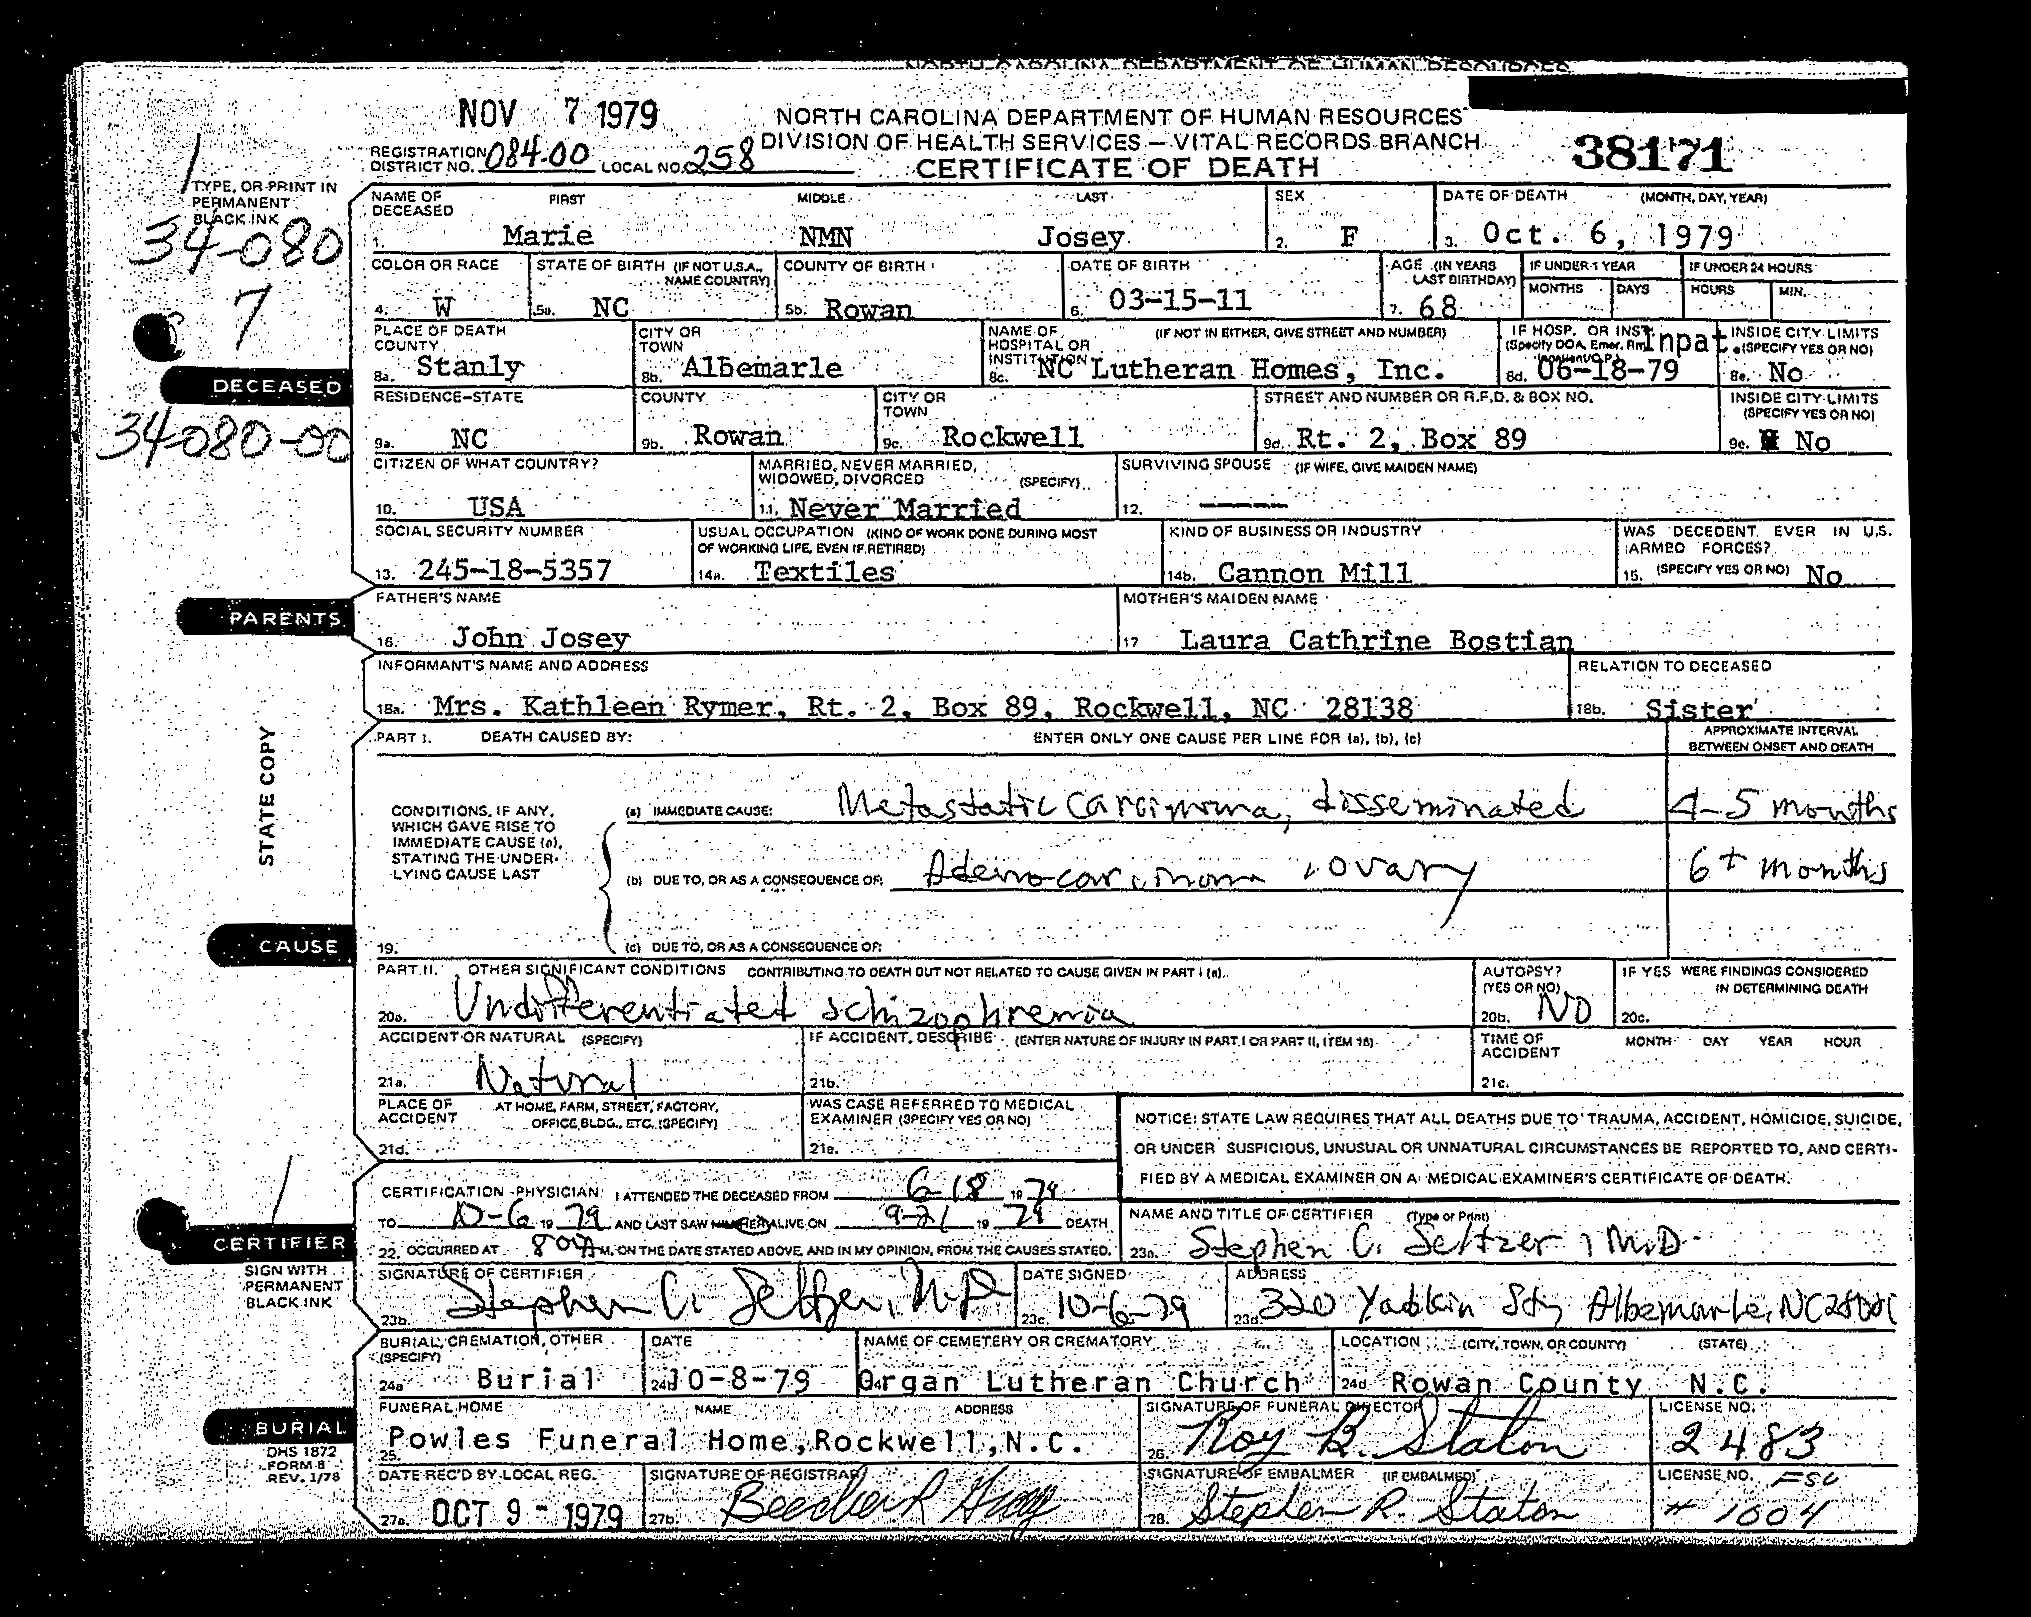 NORTH CAROLINA DEPARTMENT OF HUMAN RESOURCES
NOV 7 1979
NORTH CAROLINA DEPARTMENT OF HUMAN RESOURCES
DIVISION OF HEALTH SERVICES — VITAL RECORDS BRANCH
CERTIFICATE OF DEATH
38171
REGISTRATION DISTRICT NO. 084-00 LOCAL NO. 258
TYPE, OR PRINT IN
PERMANENT
BLACK INK
34-080
7
DECEASED
34-080-00
NAME OF DECEASED FIRST MIDDLE LAST SEX DATE OF DEATH (MONTH, DAY, YEAR)
1. Marie NMN Josey 2. F 3. Oct. 6, 1979
COLOR OR RACE STATE OF BIRTH (IF NOT U.S.A., NAME COUNTRY) COUNTY OF BIRTH DATE OF BIRTH AGE (IN YEARS LAST BIRTHDAY) IF UNDER 1 YEAR MONTHS DAYS IF UNDER 24 HOURS HOURS MIN.
4. W 5a. NC 5b. Rowan 6. 03-15-11 7. 68
PLACE OF DEATH COUNTY CITY OR TOWN NAME OF HOSPITAL OR INSTITUTION (IF NOT IN EITHER, GIVE STREET AND NUMBER) IF HOSP. OR INST. (Specify DOA, Emer. Rm Inpat. INSIDE CITY LIMITS (SPECIFY YES OR NO)
8a. Stanly 8b. Albemarle 8c. NC Lutheran Homes, Inc. 8d. 06-18-79 8e. No
RESIDENCE-STATE COUNTY CITY OR TOWN STREET AND NUMBER OR R.F.D. & BOX NO. INSIDE CITY LIMITS (SPECIFY YES OR NO)
9a. NC 9b. Rowan 9c. Rockwell 9d. Rt. 2, Box 89 9e. No
CITIZEN OF WHAT COUNTRY? MARRIED, NEVER MARRIED, WIDOWED, DIVORCED (SPECIFY) SURVIVING SPOUSE (IF WIFE, GIVE MAIDEN NAME)
10. USA 11. Never Married 12. ———
SOCIAL SECURITY NUMBER USUAL OCCUPATION (KIND OF WORK DONE DURING MOST OF WORKING LIFE, EVEN IF RETIRED) KIND OF BUSINESS OR INDUSTRY WAS DECEDENT EVER IN U.S. ARMED FORCES?
13. 245-18-5357 14a. Textiles 14b. Cannon Mill 15. (SPECIFY YES OR NO) No
PARENTS
FATHER'S NAME MOTHER'S MAIDEN NAME
16. John Josey 17 Laura Cathrine Bostian
INFORMANT'S NAME AND ADDRESS RELATION TO DECEASED
18a. Mrs. Kathleen Rymer, Rt. 2, Box 89, Rockwell, NC 28138 18b. Sister
STATE COPY
PART I. DEATH CAUSED BY: ENTER ONLY ONE CAUSE PER LINE FOR (a), (b), (c) APPROXIMATE INTERVAL BETWEEN ONSET AND DEATH
CONDITIONS, IF ANY,
WHICH GAVE RISE TO
IMMEDIATE CAUSE (a),
STATING THE UNDER-
LYING CAUSE LAST
(a) IMMEDIATE CAUSE: Metastatic carcinoma, disseminated 4-5 months
(b) DUE TO, OR AS A CONSEQUENCE OF: Adenocarcinoma, ovary 6+ months
CAUSE
19. (c) DUE TO, OR AS A CONSEQUENCE OF:
PART II. OTHER SIGNIFICANT CONDITIONS CONTRIBUTING TO DEATH BUT NOT RELATED TO CAUSE GIVEN IN PART I (a). AUTOPSY? (YES OR NO) IF YES WERE FINDINGS CONSIDERED IN DETERMINING DEATH
20a. Undifferentiated schizophrenia 20b. NO 20c.
ACCIDENT OR NATURAL (SPECIFY) IF ACCIDENT, DESCRIBE (ENTER NATURE OF INJURY IN PART I OR PART II, ITEM 18) TIME OF ACCIDENT MONTH DAY YEAR HOUR
21a. Natural 21b. 21c.
PLACE OF ACCIDENT AT HOME, FARM, STREET, FACTORY, OFFICE BLDG., ETC. (SPECIFY) WAS CASE REFERRED TO MEDICAL EXAMINER (SPECIFY YES OR NO)
21d. 21e.
NOTICE: STATE LAW REQUIRES THAT ALL DEATHS DUE TO TRAUMA, ACCIDENT, HOMICIDE, SUICIDE,
OR UNDER SUSPICIOUS, UNUSUAL OR UNNATURAL CIRCUMSTANCES BE REPORTED TO, AND CERTI-
FIED BY A MEDICAL EXAMINER ON A MEDICAL EXAMINER'S CERTIFICATE OF DEATH.
CERTIFICATION-PHYSICIAN: I ATTENDED THE DECEASED FROM 6-18 19 79
TO 10-6 19 79 AND LAST SAW HER ALIVE ON 9-21 19 79 DEATH
22. OCCURRED AT 8:00 A M. ON THE DATE STATED ABOVE, AND IN MY OPINION, FROM THE CAUSES STATED.
NAME AND TITLE OF CERTIFIER (Type or Print)
23a. Stephen C. Seltzer, M.D.
CERTIFIER
SIGN WITH
PERMANENT
BLACK INK
SIGNATURE OF CERTIFIER DATE SIGNED ADDRESS
23b. Stephen C. Seltzer, M.D. 23c. 10-6-79 23d. 320 Yadkin St, Albemarle, NC 28001
BURIAL, CREMATION, OTHER (SPECIFY) DATE NAME OF CEMETERY OR CREMATORY LOCATION (CITY, TOWN, OR COUNTY) (STATE)
24a Burial 24b 10-8-79 Organ Lutheran Church 24d Rowan County N.C.
BURIAL
DHS 1872
FORM 8
REV. 1/78
FUNERAL HOME NAME ADDRESS SIGNATURE OF FUNERAL DIRECTOR LICENSE NO.
25. Powles Funeral Home, Rockwell, N.C. 26. Roy B. Staton 2483
DATE REC'D BY LOCAL REG. SIGNATURE OF REGISTRAR SIGNATURE OF EMBALMER (IF EMBALMED) LICENSE NO. FSL
27a. OCT 9 - 1979 27b. Beecher R Gray 28. Stephen R. Staton # 1004